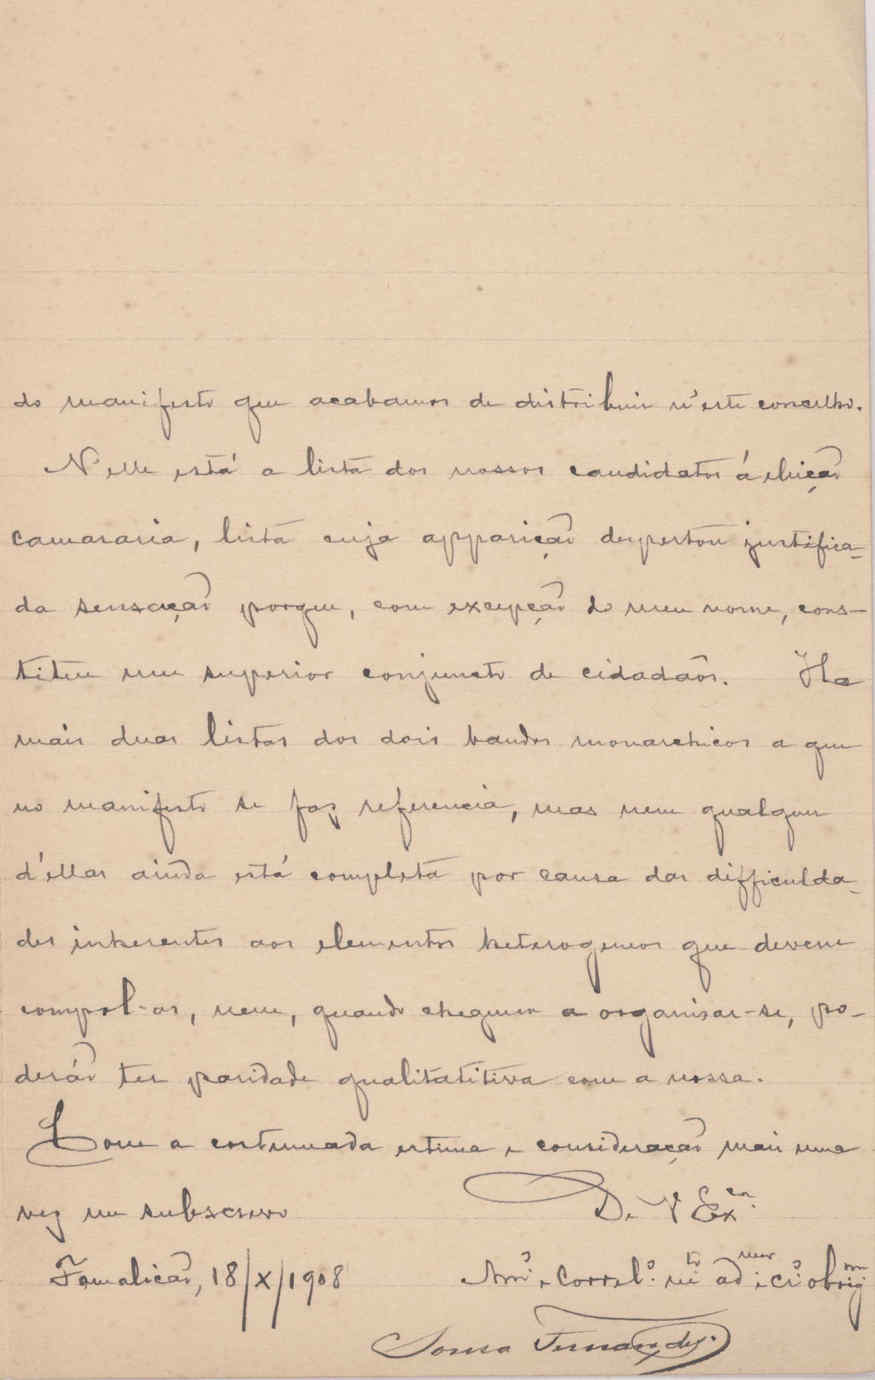 do manifesto que acabamos de distribuir n'este concelho.
N'elle está a lista dos nossos candidatos á eleição
camararia, lista cuja apparição despertou justifica-
da sensação porque, com excepção do meu nome, cons-
titue um superior conjuncto de cidadãos. Ha
mais duas listas dos dois bandos monarchicos a que
no manifesto se faz referencia, mas nem qualquer
d'ellas ainda está completa por causa das difficulda-
des inherentes aos elementos heterogeneos que devem
compol-as, nem, quando cheguem a organisar-se, po-
derão ter paridade qualitatitiva com a nossa.
Com a continuada estima e consideração mais uma
vez me subscrevo De V Exª.
Famalicão, 18/X/1908 Amº e Correlº. mtº admor e crº obrigmo
Sousa Fernandes.